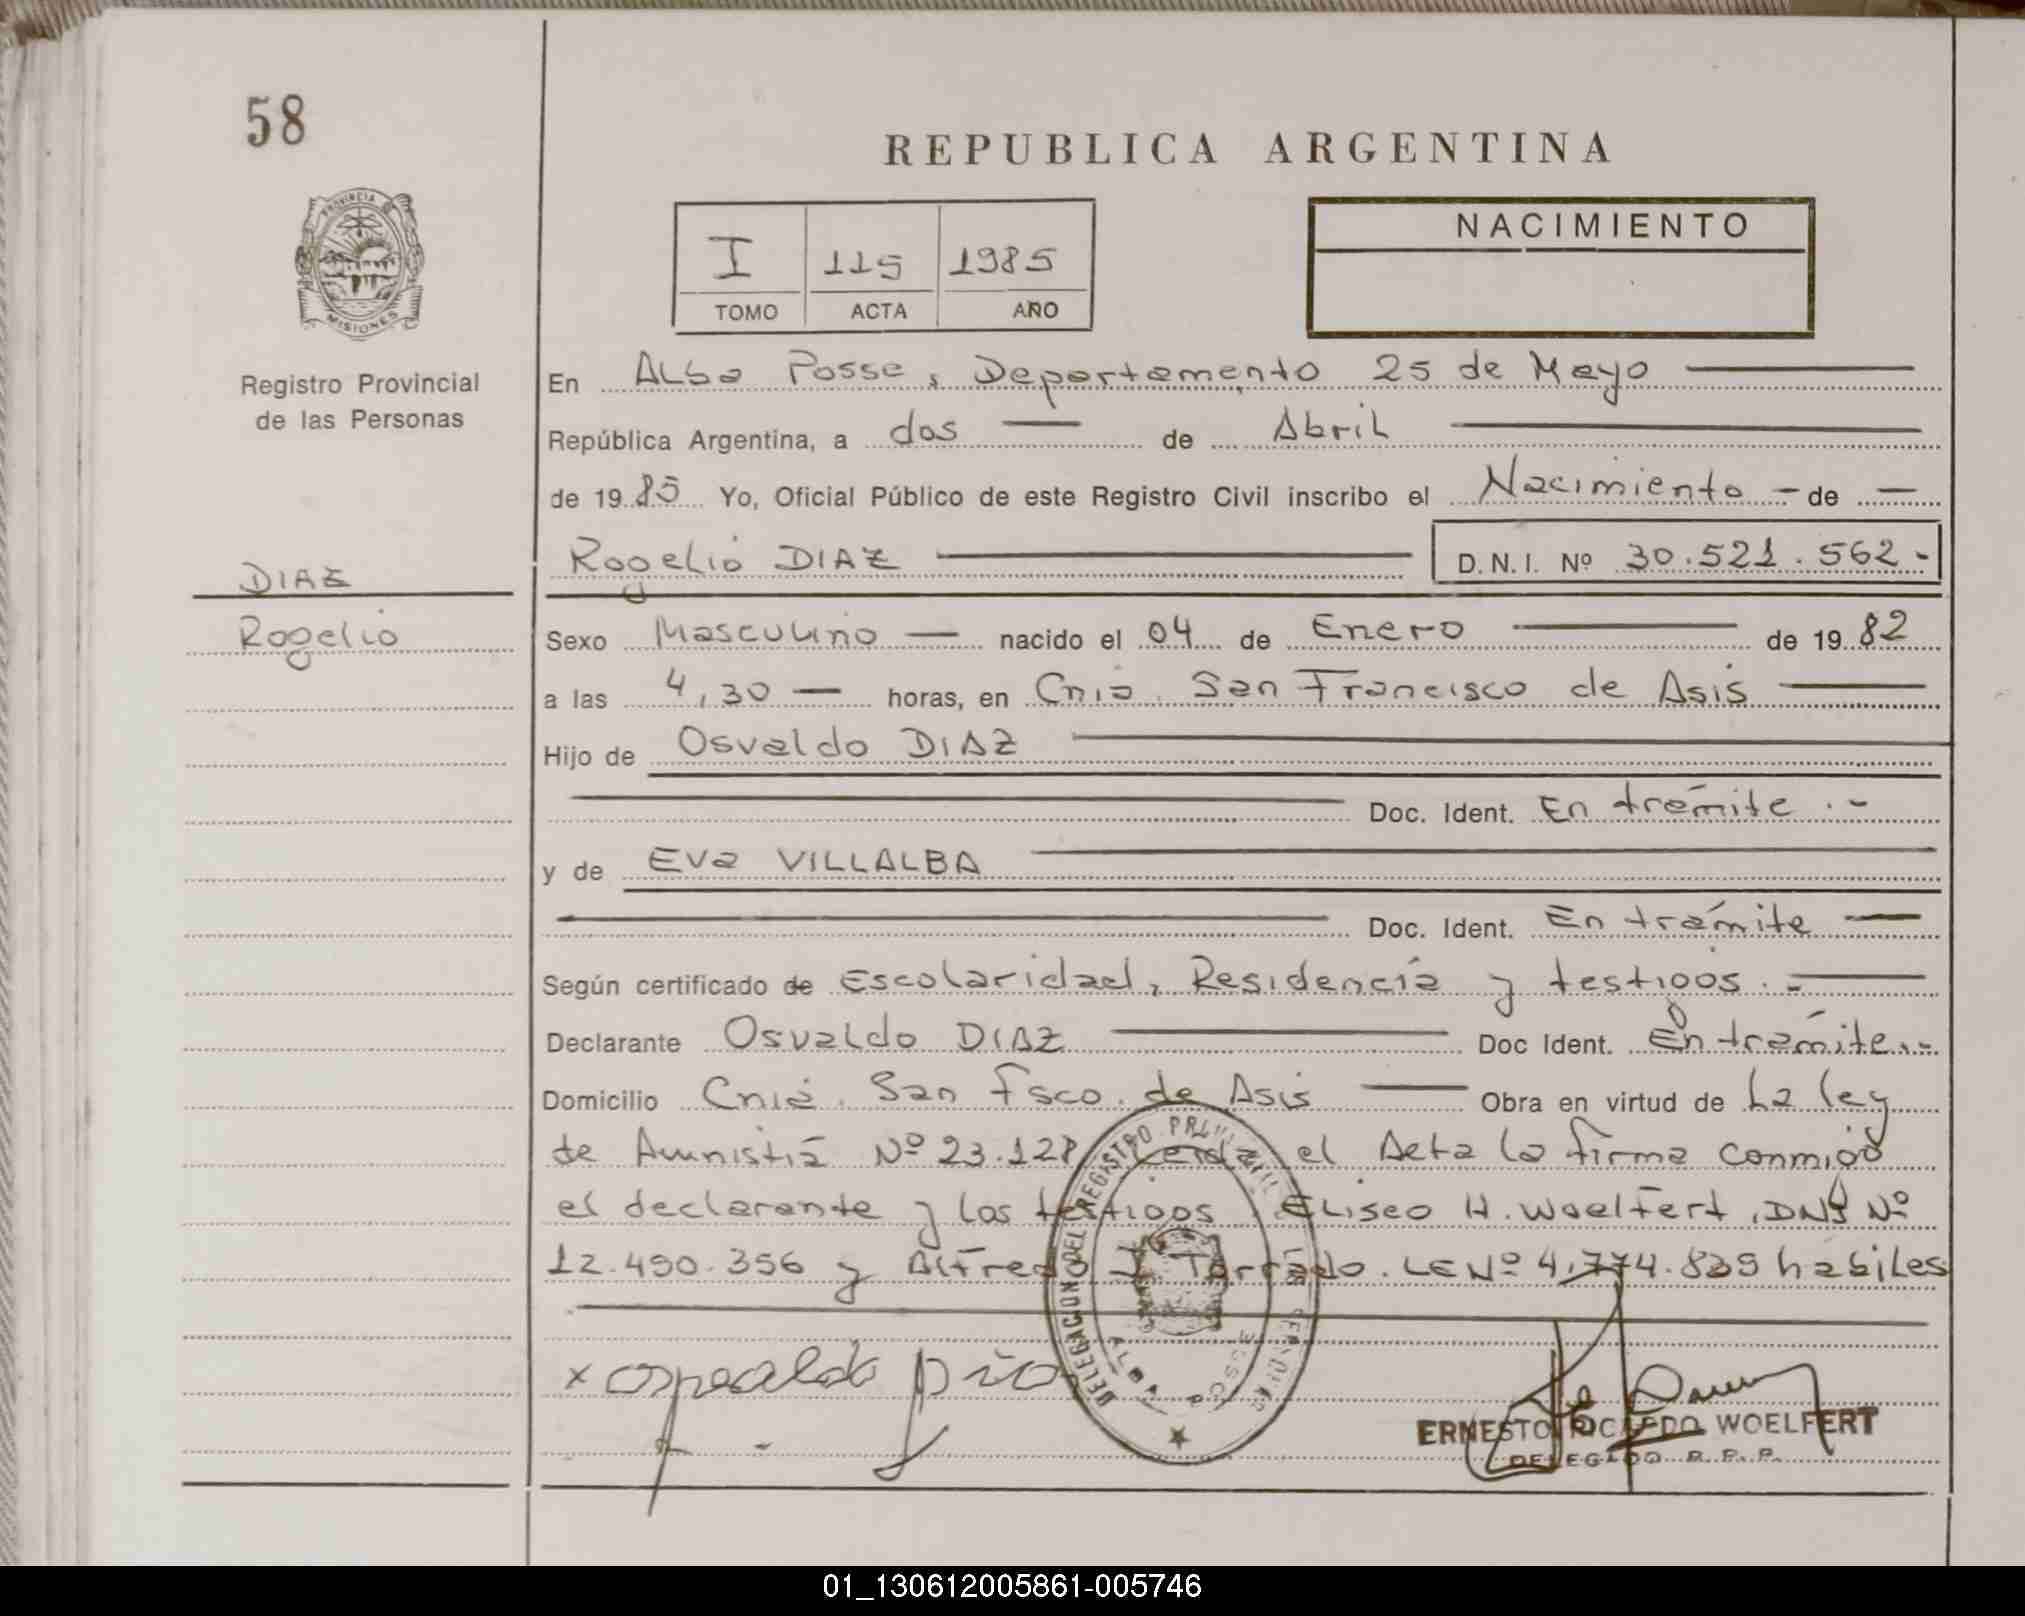 58
REPUBLICA ARGENTINA
PROVINCIA
MISIONES
Registro Provincial
de las Personas
I 115 1985
TOMO ACTA AÑO
NACIMIENTO
En Alba Posse, Departamento 25 de Mayo
República Argentina, a dos de Abril
de 1985 Yo, Oficial Público de este Registro Civil inscribo el Nacimiento - de -
Rogelio DIAZ D.N.I. Nº 30.521.562.-
DIAZ
Rogelio
Sexo Masculino nacido el 04 de Enero de 1982
a las 4,30 horas, en Cnia. San Francisco de Asis
Hijo de Osvaldo DIAZ
Doc. Ident. En trámite.-
y de Eva VILLALBA
Doc. Ident. En trámite
Según certificado de Escolaridad, Residencia y testigos.-
Declarante Osvaldo DIAZ Doc Ident. En trámite.-
Domicilio Cnia. San Fsco. de Asis Obra en virtud de La ley
de Amnistiá Nº 23.128 Leida el Acta la firma conmigo
el declarante y los testigos Eliseo H. Woelfert, DNI Nº
12.490.356 y Alfredo J. Torrado. LE Nº 4.774.839 habiles
DELEGACION DEL REGISTRO PROVINCIAL DE LAS PERSONAS
ALBA POSSE
x Osvaldo Diaz
ERNESTO RICARDO WOELFERT
DELEGADO R.P.P.
01_130612005861-005746